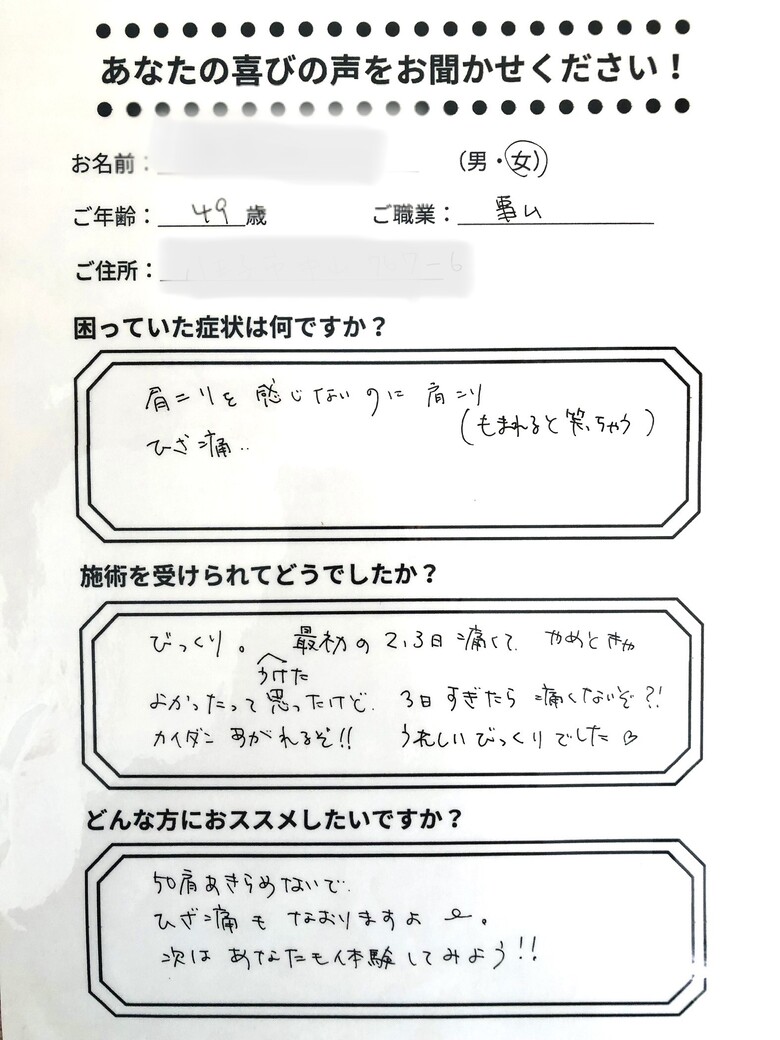 あなたの喜びの声をお聞かせください！
お名前： (男・女)
ご年齢：49歳 ご職業：事ム
ご住所：
困っていた症状は何ですか？
肩こりを感じないのに肩こり
(もまれると笑っちゃう)
ひざ痛..
施術を受けられてどうでしたか？
びっくり。最初の2,3日痛くて、やめときゃ
うけた
よかったって思ったけど、3日すぎたら痛くないぞ?!
カイダンあがれるぞ!! うれしいびっくりでした♡
どんな方におススメしたいですか？
50肩あきらめないで、
ひざ痛もなおりますよ 。
次はあなたも体験してみよう!!